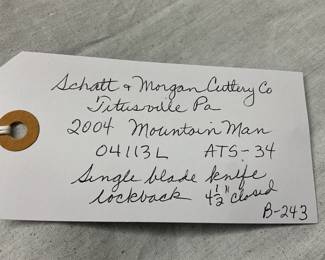 Schatt & Morgan Cuttery Co
Titusville Pa
2004 Mountain Man
04113L ATS-34
Single blade knife
lockback 4 1/2" closed
B-243